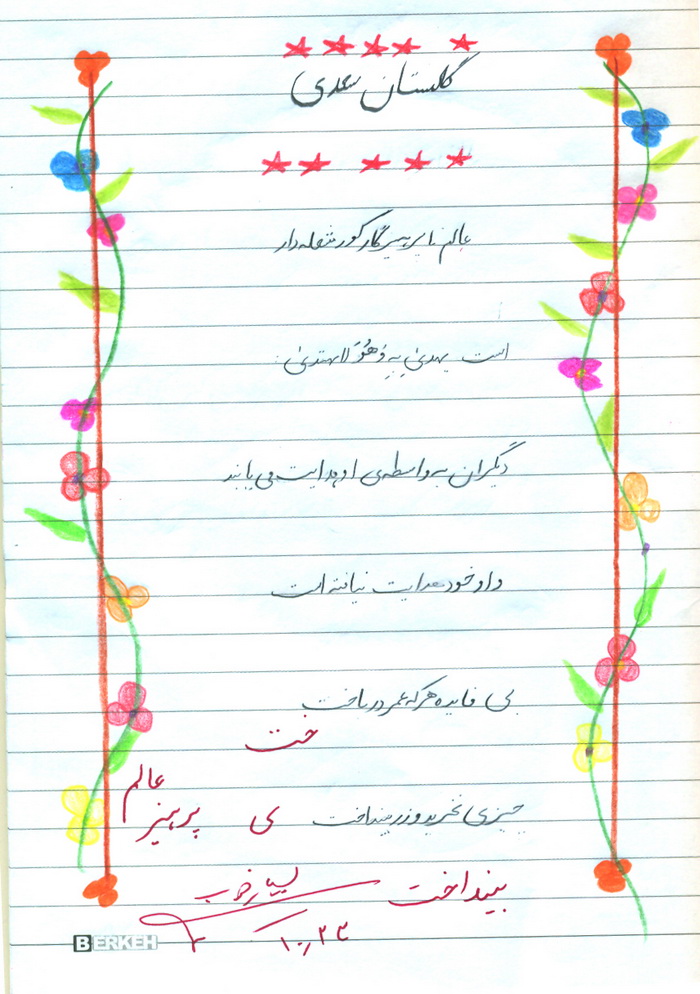 گلستان سعدی
عالم ناپرهیزگار کور مشعله‌دار
است یهدیٰ بِهِ وَ هُوَ لا یهتدیٰ.
دیگران به واسطه‌ی او هدایت می‌یابند
و او خود هدایت نیافته است
بی فایده هر که عمر در باخت
خت
چیزی نخرید و زر بینداخت
ی پرهیز عالم
بینداخت
بسیار خوب
۱۰٫۲۳
BERKEH